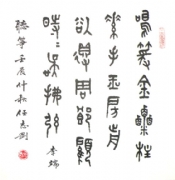 鳴箏金粟柱
素手玉房前
欲得周郎顧
時時誤拂弦
李端
聽箏 壬辰仲秋